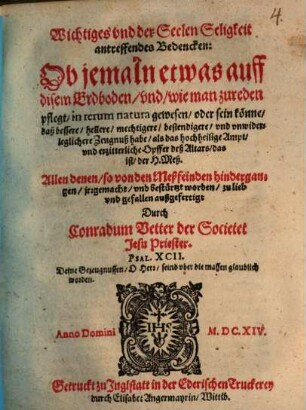 4.
Wichtiges vnd der Seelen Seligkeit
antreffendes Bedencken:
Ob jemaln etwas auff
disem Erdboden/ vnd/ wie man zureden
pflegt/ in rerum natura gewesen/ oder sein könne/
daß bessere/ hellere/ mechtigere/ bestendigere/ vnd vnwider-
leglichere Zeugnuß habe/ als das hochheilige Ampt/
vnd erzitterliche Opffer deß Altars/ das
ist/ der H. Meß.
Allen denen/ so von den Meßfeinden hindergan-
gen/ jrrgemacht/ vnd bestürtzt worden/ zu lieb
vnd gefallen außgefertigt
Durch
Conradum Vetter der Societet
Jesu Priester.
PSAL. XCII.
Deine Gezeugnussen/ O Herr/ seind vber die massen glaublich
worden.
Anno Domini M. DC. XIV.
IHS
Getruckt zu Inglstatt in der Ederischen Truckerey
durch Elisabet Angermayrin/ Wittib.